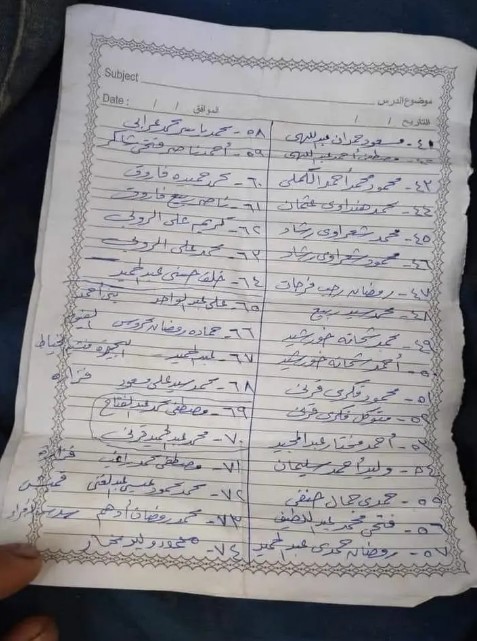 Subject
موضوع الدرس
Date : / / الموافق
التاريخ / /
٤١- مسعود حمدان عبد
٤٣- محمود محمد أحمد الكملى
٤٤- محمد هنداوى عثمان
٤٥- محمد شعراوى رشاد
٤٦- محمود شعراوى رشاد
٤٧- رمضان رجب فرجان
٤٨- محمد سيد ربيع
٤٩- محمد شحاته خورشيد
٥٠- أحمد شحاته خورشيد
٥١- محمود فكرى قرنى
٥٢- متوكل فكرى قرنى
٥٣- أحمد مختار عبد المجيد
٥٤- وليد أحمد سليمان
٥٥- حمدى جمال حنفى
٥٦- فتحى محمد عبد اللطيف
٥٧- رمضان حمدى عبد الحميد
٥٨- محمد ياسر محمد
٥٩- أحمد ناصر فتحى شاكر
٦٠- حميده فاروق
٦١- ناصر ربيع فاروق
٦٢- كريم على الروبى
٦٣- محمد على الروبى
٦٤- خلف حسنى عبد الحميد
٦٥- على عبد الواحد
٦٦- حماده رمضان محروس
٦٧- عبد الحميد
٦٨- محمد سيد على مسعود فزاره
٦٩- مصطفى محمد عبد الفتاح
٧٠- محمد عبد الحميد قرنى
٧١- مصطفى محمد راغب فزاره
٧٢- محمد محمود عيسى عبد الغنى
٧٣- محمد رمضان أدهم
٧٤- محمود وليد مختار